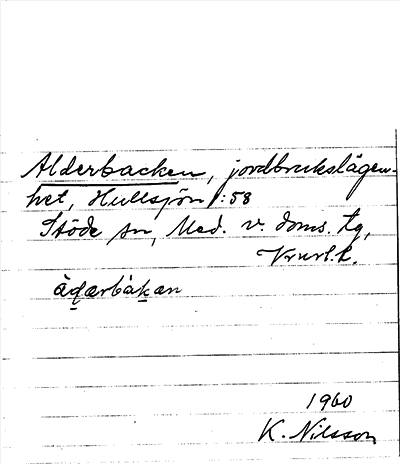 Alderbacken, jordbrukslägen-
het, Hullsjön 1:58
Stöde sn, Med. v. doms. tg,
Vrnrl.k.
àdærbàkan
1960
K. Nilsson